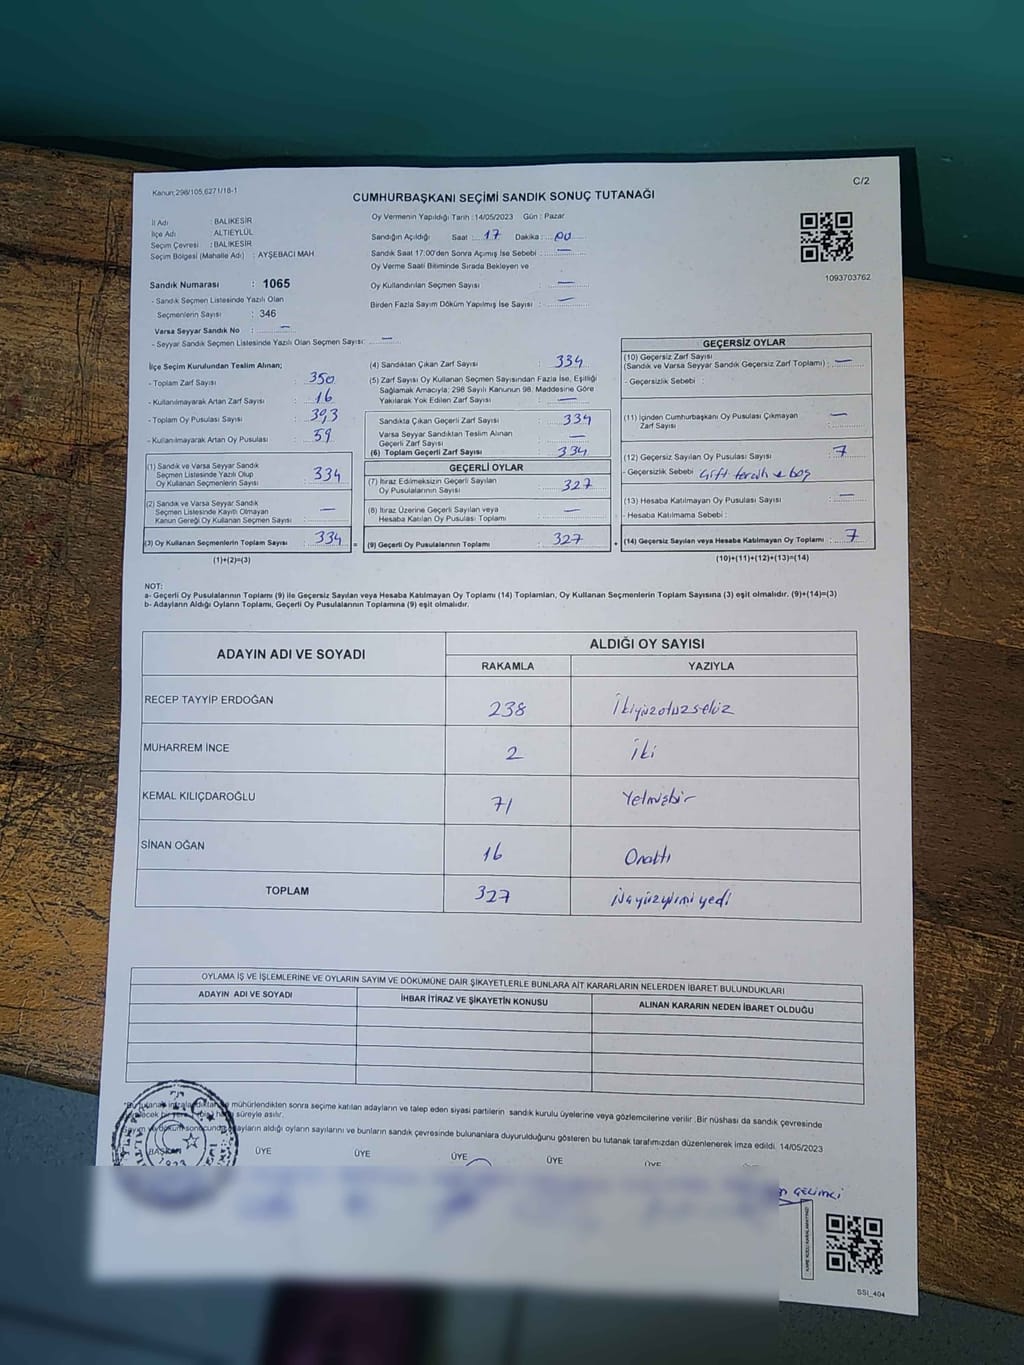 Kanun:298/105,6271/18-1
C/2
CUMHURBAŞKANI SEÇİMİ SANDIK SONUÇ TUTANAĞI
İl Adı : BALIKESİR
İlçe Adı : ALTIEYLÜL
Seçim Çevresi : BALIKESİR
Seçim Bölgesi (Mahalle Adı) : AYŞEBACI MAH
Oy Vermenin Yapıldığı Tarih : 14/05/2023 Gün : Pazar
Sandığın Açıldığı Saat : 17 Dakika : 00
Sandık Saat 17:00'den Sonra Açımış İse Sebebi : —
Oy Verme Saati Bitiminde Sırada Bekleyen ve
Oy Kullandırılan Seçmen Sayısı : —
Birden Fazla Sayım Döküm Yapılmış İse Sayısı : —
1093703762
Sandık Numarası : 1065
- Sandık Seçmen Listesinde Yazılı Olan
Seçmenlerin Sayısı : 346
Varsa Seyyar Sandık No : —
- Seyyar Sandık Seçmen Listesinde Yazılı Olan Seçmen Sayısı: —
İlçe Seçim Kurulundan Teslim Alınan;
- Toplam Zarf Sayısı : 350
- Kullanılmayarak Artan Zarf Sayısı : 16
- Toplam Oy Pusulası Sayısı : 393
- Kullanılmayarak Artan Oy Pusulası : 59
(1) Sandık ve Varsa Seyyar Sandık
Seçmen Listesinde Yazılı Olup
Oy Kullanan Seçmenlerin Sayısı : 334
(2) Sandık ve Varsa Seyyar Sandık
Seçmen Listesinde Kayıtlı Olmayan
Kanun Gereği Oy Kullanan Seçmen Sayısı : —
(3) Oy Kullanan Seçmenlerin Toplam Sayısı : 334 =
(1)+(2)=(3)
(4) Sandıktan Çıkan Zarf Sayısı : 334
(5) Zarf Sayısı Oy Kullanan Seçmen Sayısından Fazla İse, Eşitliği
Sağlamak Amacıyla; 298 Sayılı Kanunun 98. Maddesine Göre
Yakılarak Yok Edilen Zarf Sayısı : —
Sandıkta Çıkan Geçerli Zarf Sayısı : 334
Varsa Seyyar Sandıktan Teslim Alınan
Geçerli Zarf Sayısı : —
(6) Toplam Geçerli Zarf Sayısı : 334
GEÇERLİ OYLAR
(7) İtiraz Edilmeksizin Geçerli Sayılan
Oy Pusulalarının Sayısı : 327
(8) İtiraz Üzerine Geçerli Sayılan veya
Hesaba Katılan Oy Pusulası Toplamı : —
(9) Geçerli Oy Pusulalarının Toplamı : 327 +
GEÇERSİZ OYLAR
(10) Geçersiz Zarf Sayısı
(Sandık ve Varsa Seyyar Sandık Geçersiz Zarf Toplamı) : —
- Geçersizlik Sebebi :
(11) İçinden Cumhurbaşkanı Oy Pusulası Çıkmayan
Zarf Sayısı : —
(12) Geçersiz Sayılan Oy Pusulası Sayısı : 7
- Geçersizlik Sebebi : Çift tercih ve boş
(13) Hesaba Katılmayan Oy Pusulası Sayısı : —
- Hesaba Katılmama Sebebi :
(14) Geçersiz Sayılan veya Hesaba Katılmayan Oy Toplamı : 7
(10)+(11)+(12)+(13)=(14)
NOT:
a- Geçerli Oy Pusulalarının Toplamı (9) ile Geçersiz Sayılan veya Hesaba Katılmayan Oy Toplamı (14) Toplamları, Oy Kullanan Seçmenlerin Toplam Sayısına (3) eşit olmalıdır. (9)+(14)=(3)
b- Adayların Aldığı Oyların Toplamı, Geçerli Oy Pusulalarının Toplamına (9) eşit olmalıdır.
ADAYIN ADI VE SOYADI
ALDIĞI OY SAYISI
RAKAMLA YAZIYLA
RECEP TAYYİP ERDOĞAN 238 İkiyüzotuzsekiz
MUHARREM İNCE 2 İki
KEMAL KILIÇDAROĞLU 71 Yetmişbir
SİNAN OĞAN 16 Onaltı
TOPLAM 327 üçyüzyirmiyedi
OYLAMA İŞ VE İŞLEMLERİNE VE OYLARIN SAYIM VE DÖKÜMÜNE DAİR ŞİKAYETLERLE BUNLARA AİT KARARLARIN NELERDEN İBARET BULUNDUKLARI
ADAYIN ADI VE SOYADI İHBAR İTİRAZ VE ŞİKAYETİN KONUSU ALINAN KARARIN NEDEN İBARET OLDUĞU
mühürlendikten sonra seçime katılan adayların ve talep eden siyasi partilerin sandık kurulu üyelerine veya gözlemcilerine verilir. Bir nüshası da sandık çevresinde
süreyle asılır.
adayların aldığı oyların sayılarını ve bunların sandık çevresinde bulunanlara duyurulduğunu gösteren bu tutanak tarafımızdan düzenlenerek imza edildi. 14/05/2023
BAŞKAN ÜYE ÜYE ÜYE ÜYE ÜYE
SSI_404